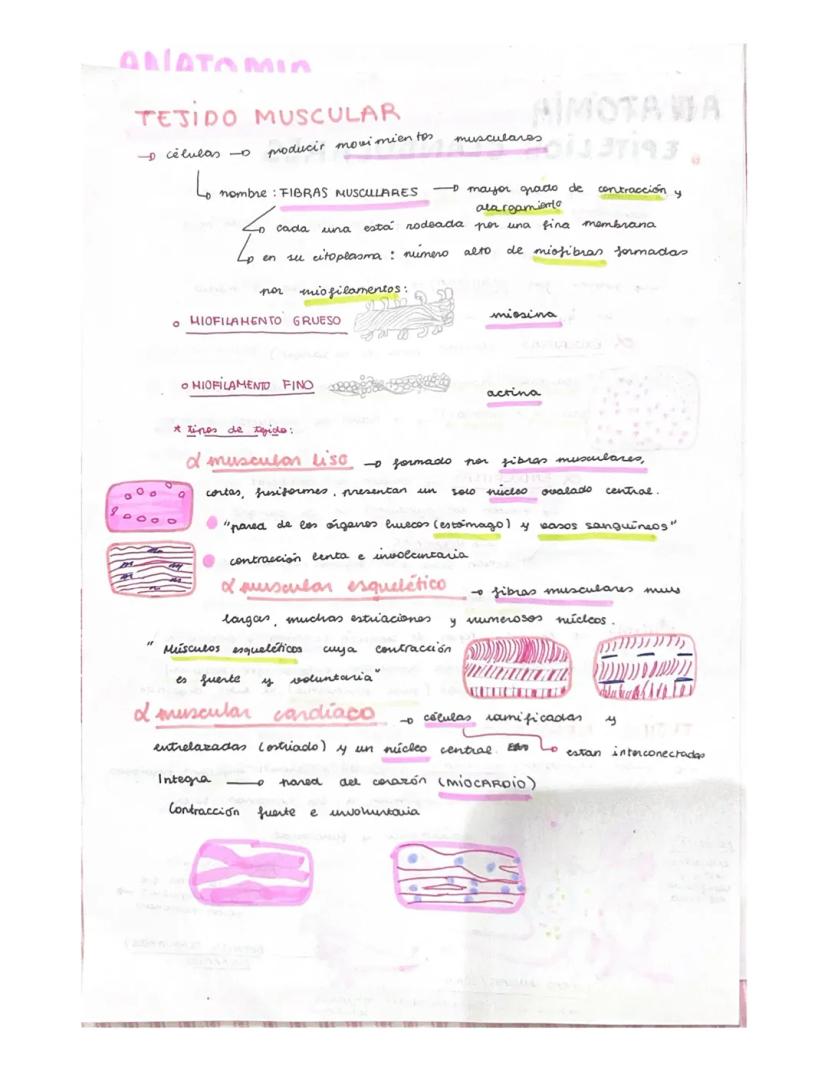 ANATOMIA
TEJIDO MUSCULAR
células → producir movimientos musculares
nombre : FIBRAS MUSCULARES → mayor grado de contracción y
alargamiento
cada una está rodeada por una fina membrana
en su citoplasma : número alto de miofibras formadas
por miofilamentos :
MIOFILAMENTO GRUESO miosina
MIOFILAMENTO FINO actina
* tipos de tejido :
muscular liso → formado por fibras musculares,
cortas, fusiformes, presentan un solo núcleo ovalado central.
"pared de los órganos huecos (estómago) y vasos sanguíneos"
contracción lenta e involuntaria
muscular esquelético → fibras musculares muy
largas, muchas estriaciones y numerosos núcleos.
"Músculos esqueléticos cuya contracción
es fuerte y voluntaria"
muscular cardíaco → células ramificadas y
entrelazadas (estriado) y un núcleo central. → estan interconectadas
Integra → pared del corazón (MIOCARDIO)
Contracción fuerte e involuntaria